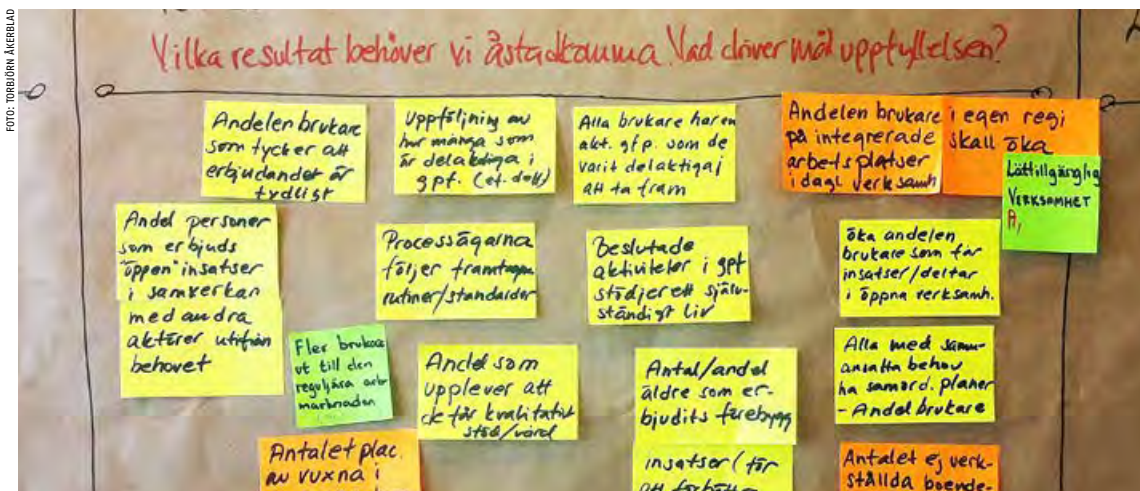 FOTO: TORBJÖRN ÅKERBLAD
Vilka resultat behöver vi åstadkomma. Vad driver måluppfyllelsen?
Andelen brukare
som tycker att
erbjudandet är
tydligt
Uppföljning av
hur många som
är delaktiga i
gpf. (et. delt)
Alla brukare har en
akt. gfp. som de
varit delaktiga i
att ta fram
Andelen brukare
på integrerade
arbetsplatser
i dagl verksamh
i egen regi
skall öka
Lättillgänglig
VERKSAMHET
Andel personer
som erbjuds
"öppen" insatser
i samverkan
med andra
aktörer utifrån
behovet
Processägarna
följer framtagna
rutiner/standarder
Beslutade
aktiviteter i gpf
stödjer ett själv-
ständigt liv
öka andelen
brukare som får
insatser/deltar
i öppna verksamh.
Fler brukare
ut till den
reguljära arb
marknaden
Andel som
upplever att
de får kvalitativt
stöd/vård
Antal/andel
äldre som er-
bjudits förebygg
insatser (för
att förbättra
Alla med samm-
ansatta behov
ha samord. planer
- Andel brukare
Antalet plac.
av vuxna i
Antalet ej verk-
ställda boende-